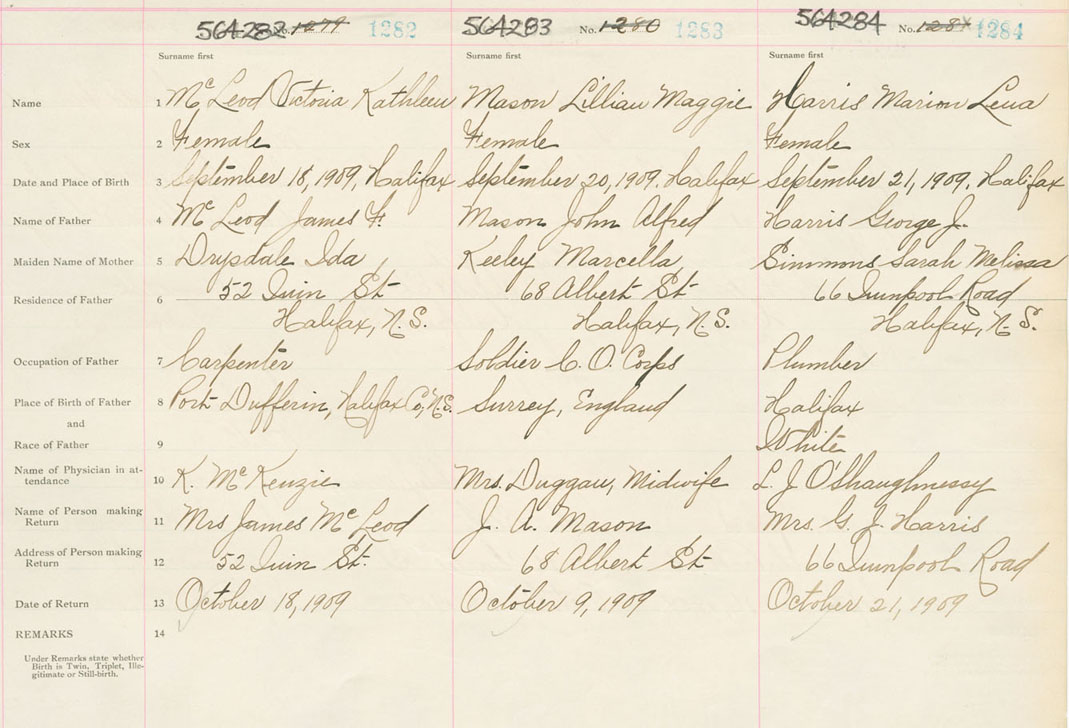 564282 No. 1279 1282 564283 No. 1280 1283 564284 No. 1281 1284
Surname first Surname first Surname first
Name 1 McLeod Victoria Kathleen Mason Lillian Maggie Harris Marion Lena
Sex 2 Female Female Female
Date and Place of Birth 3 September 18, 1909, Halifax September 20, 1909. Halifax September 21, 1909. Halifax
Name of Father 4 McLeod James F. Mason John Alfred Harris George J.
Maiden Name of Mother 5 Drysdale Ida Keeley Marcella Simmons Sarah Melissa
Residence of Father 6 52 St 68 Albert St 66 Quinpool Road
Halifax, N.S. Halifax, N.S. Halifax, N.S.
Occupation of Father 7 Carpenter Soldier C. O. Corps Plumber
Place of Birth of Father 8 Port Dufferin, Halifax Co, N.S. Surrey, England Halifax
and
Race of Father 9 White
Name of Physician in at-
tendance 10 K. McKenzie Mrs. Duggan, Midwife L. J O'Shaughnessy
Name of Person making
Return 11 Mrs James McLeod J. A. Mason Mrs. G. J. Harris
Address of Person making
Return 12 52 St. 68 Albert St 66 Quinpool Road
Date of Return 13 October 18, 1909 October 9, 1909 October 21, 1909
REMARKS 14
Under Remarks state whether
Birth is Twin, Triplet, Ille-
gitimate or Still-birth.